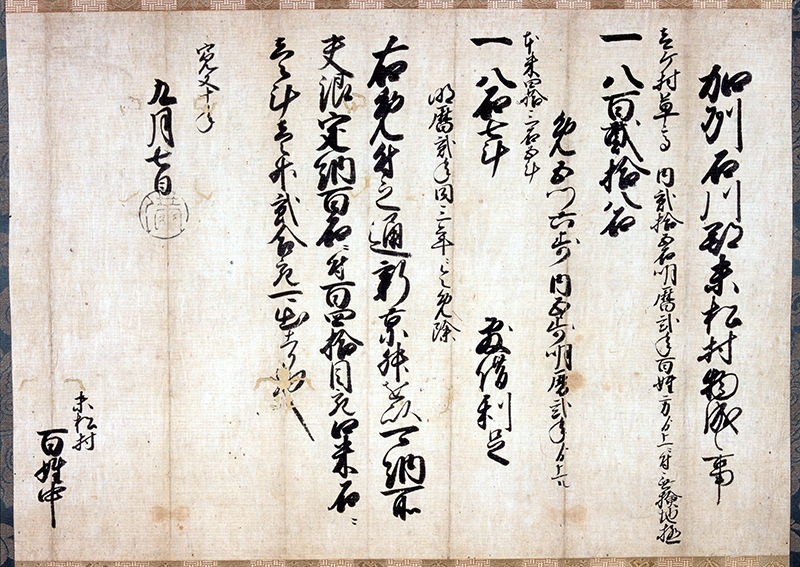 加州石川郡末松村物成之事
壱ケ村草高 内弐拾五石明暦弐年百姓方ゟ上ルニ付無検地極
一八百弐拾八石
免五ツ六歩 内五歩明暦弐年ゟ上ル
本米四拾三石五斗
一八石七斗 敷借利足
明暦弐年同三年ニ令免除
右免付之通新京舛を以可納所
夫銀定納百石ニ付百四拾目宛口米石ニ
壱斗壱升弐合宛可出者也
寛文十年
九月七日
末松村
百姓中